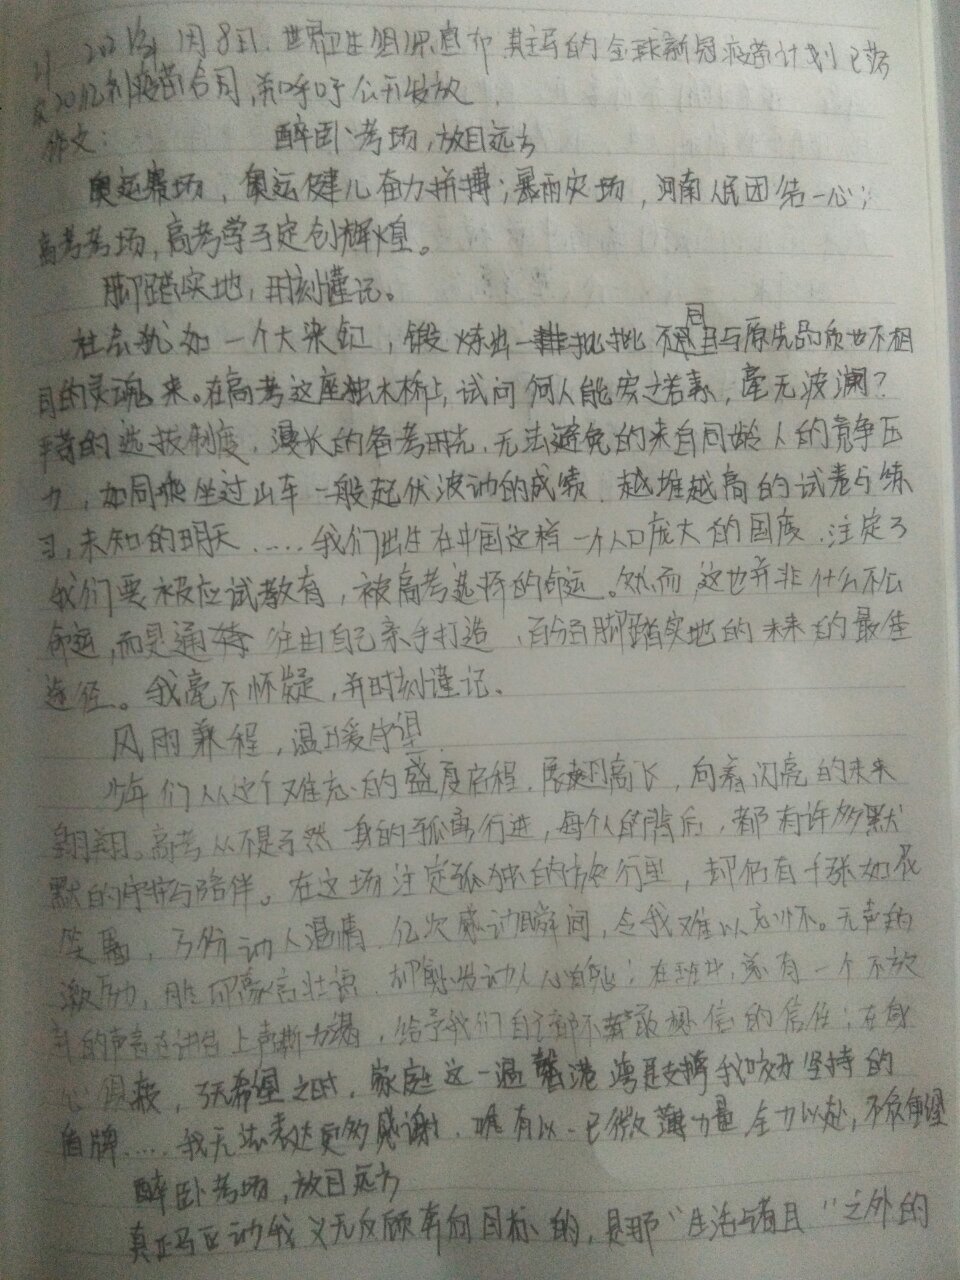 1月8日,世界卫生组织宣布其主导的全球新冠疫苗计划已落
20亿剂疫苗合同,并呼吁公开发放.
作文: 醉卧考场,放目远方
奥运赛场,奥运健儿奋力拼搏;暴雨灾场,河南人民团结一心;
高考考场,高考学子定创辉煌。
脚踏实地,时刻谨记。
社会犹如一个大染缸,锻炼出一批批不与原先品质也不相
同的灵魂来。在高考这座独木桥上,试问何人能安之若素,毫无波澜?
的选拔制度,漫长的备考时光,无法避免的来自同龄人的竞争压
力,如同乘坐过山车一般起伏波动的成绩,越堆越高的试卷与练
习,未知的明天……我们出生在中国这样一个人口庞大的国度,注定了
我们要被应试教育,被高考选择的命运。然而,这也并非什么不公
命运,而是通往由自己亲手打造、百分百脚踏实地的未来的最佳
途径。我毫不怀疑,并时刻谨记。
风雨兼程,温暖守望.
少年们从这个难忘的盛夏启程,展翅高飞,向着闪亮的未来
翱翔。高考从不是孑然一身的孤寂行进,每个人的背后,都有许多默
默的守护与陪伴。在这场注定孤独的旅行里,却仍有千张如花
笑靥,万份动人温情,亿次感动瞬间,令我难以忘怀。无声的
激励,胜却豪言壮语,却能发动人心;在班中,总有一个不放
弃的声音在讲台上声嘶力竭,给予我们自己都不敢相信的信任;在身
心俱疲,希望之时,家庭这一温馨港湾是支撑我咬牙坚持的
盾牌……我无法表达更多感谢,唯有以一己微薄力量,全力以赴,不负希望
醉卧考场,放目远方
真正驱动我义无反顾奔向目标的,是那“生活与苟且”之外的